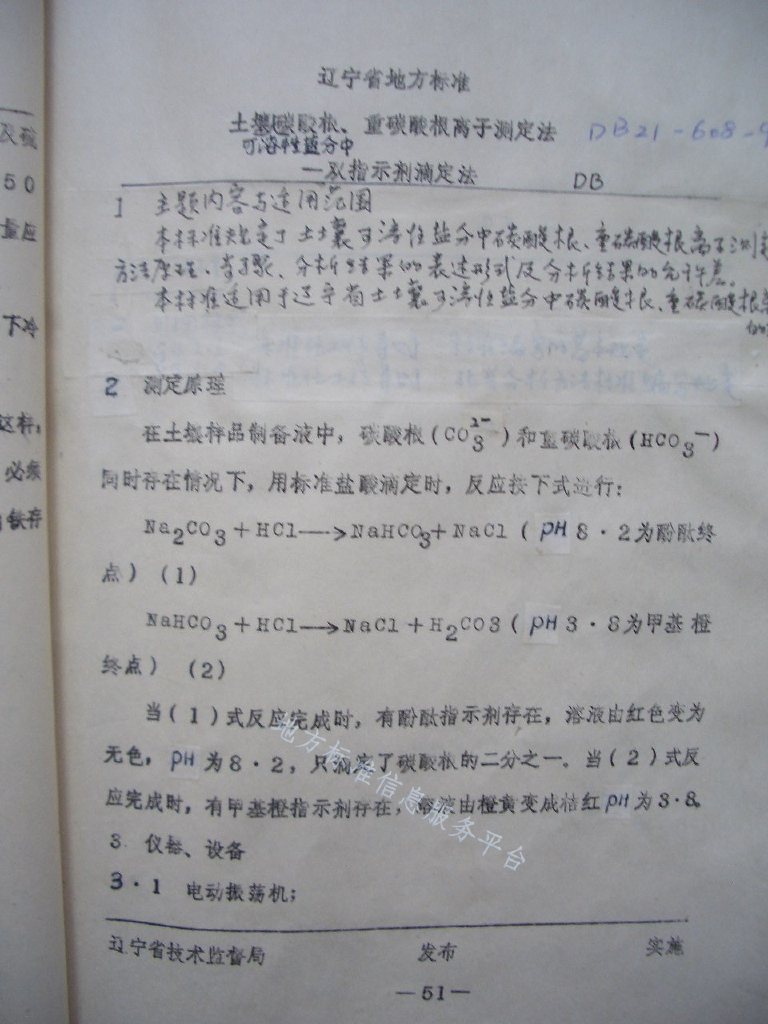 辽宁省地方标准
土壤碳酸根、重碳酸根离子测定法 DB21-608-9
可溶性盐分中
—双指示剂滴定法 DB
1 主题内容与适用范围
本标准规定了土壤可溶性盐分中碳酸根、重碳酸根离子测定
方法原理、步骤、分析结果的表述形式及分析结果的允许差。
本标准适用于辽宁省土壤可溶性盐分中碳酸根、重碳酸根
2 测定原理
在土壤样品制备液中，碳酸根(CO₃²⁻)和重碳酸根(HCO₃⁻)
同时存在情况下，用标准盐酸滴定时，反应按下式进行：
Na₂CO₃+HCl—→NaHCO₃+NaCl(pH8·2为酚酞终
点)(1)
NaHCO₃+HCl—→NaCl+H₂CO3(pH3·8为甲基橙
终点)(2)
当(1)式反应完成时，有酚酞指示剂存在，溶液由红色变为
无色，pH为8·2，只滴定了碳酸根的二分之一。当(2)式反
应完成时，有甲基橙指示剂存在，溶液由橙黄变成桔红pH为3·8。
3 仪器、设备
3·1 电动振荡机；
辽宁省技术监督局 发布 实施
—51—
及碳
50
量应
下冷
这样，
必须
铁存
地方标准信息服务平台